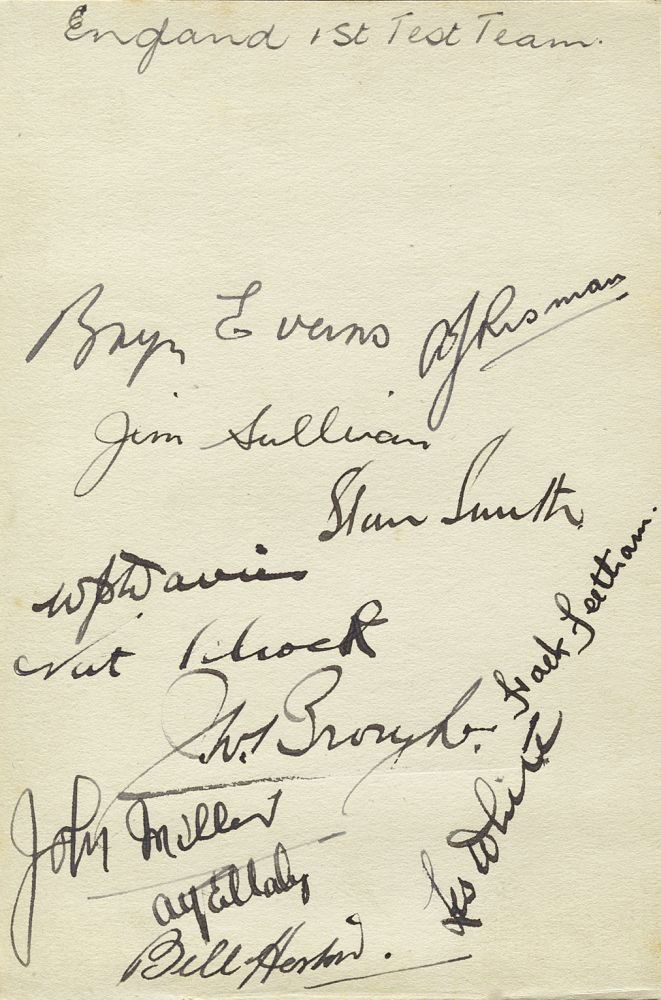 England 1st Test Team.
Bryn Evans
A J Risman
Jim Sullivan
Stan Smith
W A Davies
Nat Silcock
Jack Feetham.
Jos. Brough
Les White
John Miller
Alf Ellaby
Bill Horton.